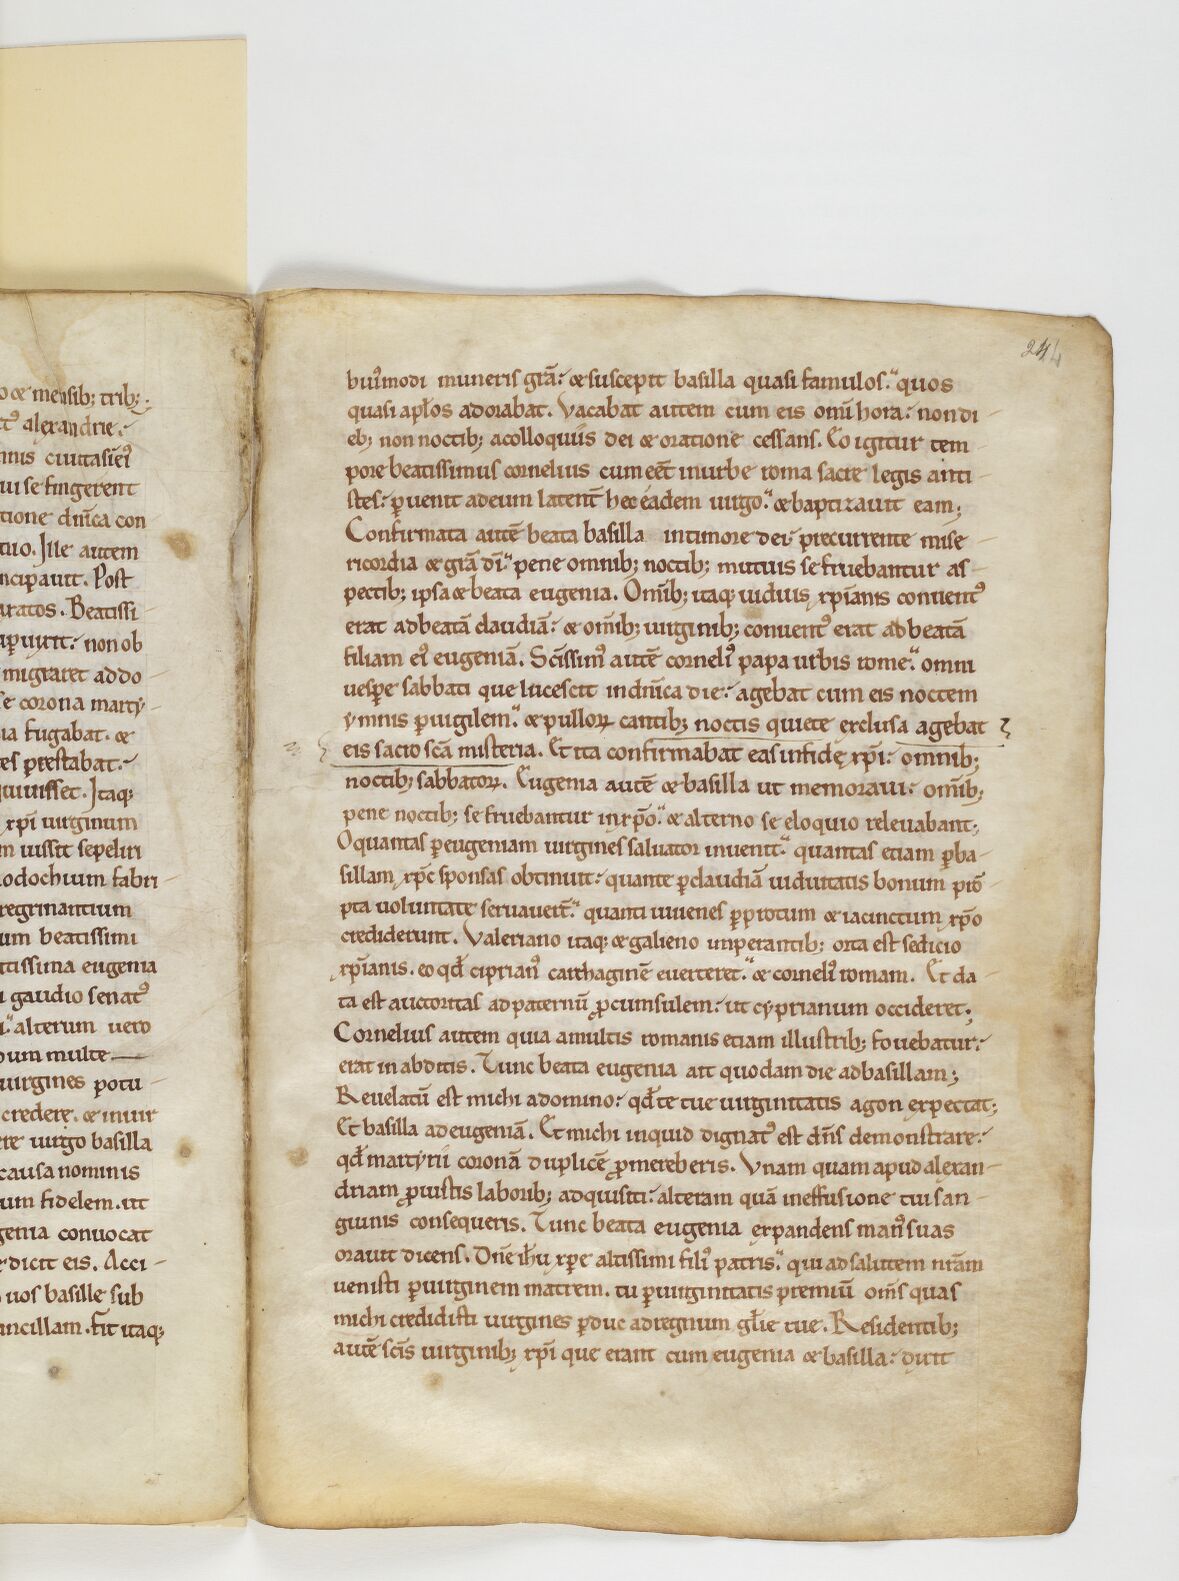 o & mensib; trib;.
t᷒ alexandrie.
nnis ciuitas ei᷒
ui se fingerent
tione dn̄ica con
tuo. Ille autem
ncipauit. Post
aratos. Beatissi
ap̱uixit: non ob
migraret ad do
se corona marty
ia fugabat. &
es prestabat.
quiuisset. Itaq;
xp̄i uirginum
m iussit sepeliri
nodochium fabri
regrinantium
um beatissimi
tissima eugenia
i gaudio senat᷒
alterum uero
oum multe
uirgines potu
credere. & inuir
ere uirgo basilla
causa nominis
um fidelem. ut
genia conuocat
dicit eis. Acci
uos basille sub
ancillam. Fit itaq;
244
hui᷒modi muneris grā: & suscepit basilla quasi famulos. quos
quasi apl̄os adorabat. Vacabat autem cum eis om̄i hora: non di
eb; non noctib; a colloquiis dei & oratione cessans. Eo igitur tem
pore beatissimus cornelius cum eēt in urbe roma sacre legis anti
stes: p̱uenit ad eum latent̄ hec eadem uirgo. & baptizauit eam;
Confirmata autē beata basilla in timore dei p̱recurrente mise
ricordia & grā dī. pene omnib; noctib; mutuis se fruebantur as
pectib; ipsa & beata eugenia. Om̄ib; itaq; uiduis xp̄ianis conuent᷒
erat ad beatā claudiā: & om̄ib; uirginib; conuent᷒ erat ad beatā
filiam ei᷒ eugeniā. Sc̄issim᷒ autē corneli᷒ papa urbis rome. omni
uesp̱e sabbati que lucescit in dn̄ica die: agebat cum eis noctem
ymnis p̱uigilem. & pulloꝝ cantib; noctis quiete exclusa agebat
eis sacro sc̄a misteria. Et ita confirmabat eas in fidę xp̄i: omnib;
noctib; sabbatoꝝ. Eugenia autē & basilla ut memoraui: om̄ib;
pene noctib; se fruebantur in xp̄o. & alterno se eloquio releuabant;
O quantas p̱ eugeniam uirgines saluator inuenit. quantas etiam p̱ ba
sillam xp̄c sponsas obtinuit: quante p̱ claudiā uiduitatis bonum prō
pta uoluntate seruauert̄. quanti iuuenes p̱ protum & iacinctum xp̄o
crediderunt. Valeriano itaq; & galieno imperantib; orta est sedicio
xp̄ianis. eo qđ ciprian᷒ carthaginē euerteret. & corneli᷒ romam. Et da
ta est auctoritas ad paternū ꝓcumsulem: ut cyprianum occideret;
Cornelius autem quia a multis romanis etiam illustrib; fouebatur:
erat in abditis. Tunc beata eugenia ait quodam die ad basillam;
Reuelatū est michi a domino: qđ te tue uirginitatis agon expectat;
Et basilla ad eugeniā. Et michi inquid dignat᷒ est dn̄s demonstrare:
qđ martyrii coronā duplicē ꝓmereberis. Vnam quam apud alexan
driam ꝓ iustis laborib; adquisiti: alteram quā in effusione tui san
guinis consequeris. Tunc beata eugenia expandens man᷒ suas
orauit dicens. Dn̄e ih̄u xp̄e altissimi fili᷒ patris. qui ad salutem nr̄am
uenisti p̱ uirginem matrem. tu p̱ uirginitatis premiū om̄s quas
michi credidisti uirgines p̱duc ad regnum gl̄ie tue. Residentib;
autē sc̄is uirginib; xp̄i que erant cum eugenia & basilla: dixit